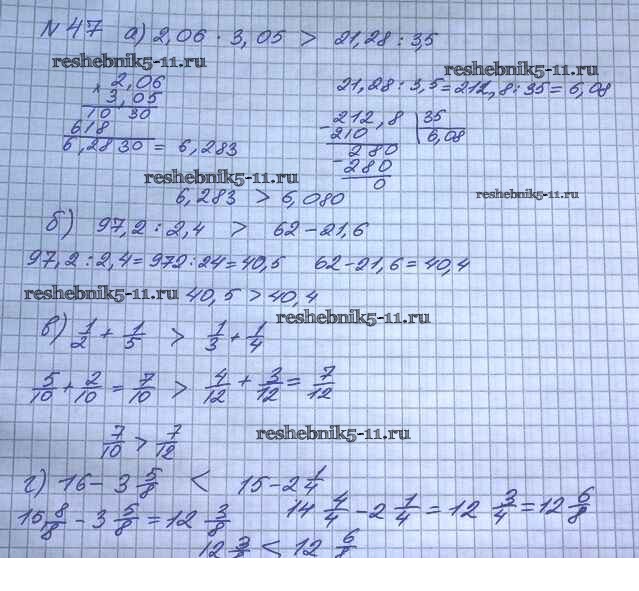 N 47 а) 2,06 · 3,05 > 21,28 : 3,5
reshebnik5-11.ru
× 2,06
3,05
10 30
618
6,2830 = 6,283
21,28 : 3,5 = 212,8 : 35 = 6,08
reshebnik5-11.ru
- 212,8 | 35
210 6,08
- 280
280
0
reshebnik5-11.ru
reshebnik5-11.ru
6,283 > 6,080
б) 97,2 : 2,4 > 62 - 21,6
97,2 : 2,4 = 972 : 24 = 40,5 62 - 21,6 = 40,4
reshebnik5-11.ru 40,5 > 40,4
reshebnik5-11.ru
в) 1/2 + 1/5 > 1/3 + 1/4
5/10 + 2/10 = 7/10 > 4/12 + 3/12 = 7/12
7/10 > 7/12
reshebnik5-11.ru
г) 16 - 3 5/8 < 15 - 2 1/4
15 8/8 - 3 5/8 = 12 3/8 14 4/4 - 2 1/4 = 12 3/4 = 12 6/8
12 3/8 < 12 6/8